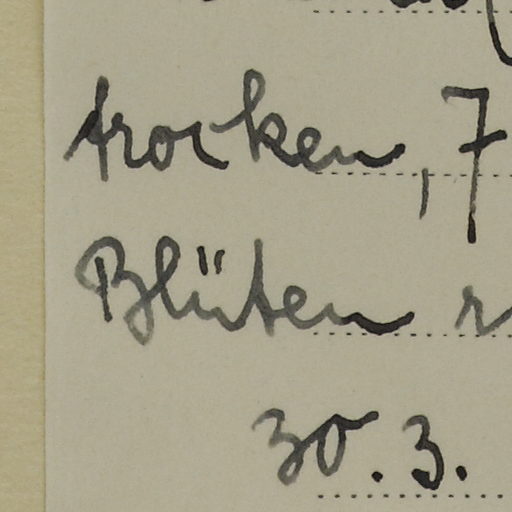 trocken, 7
Blüten
30.3.